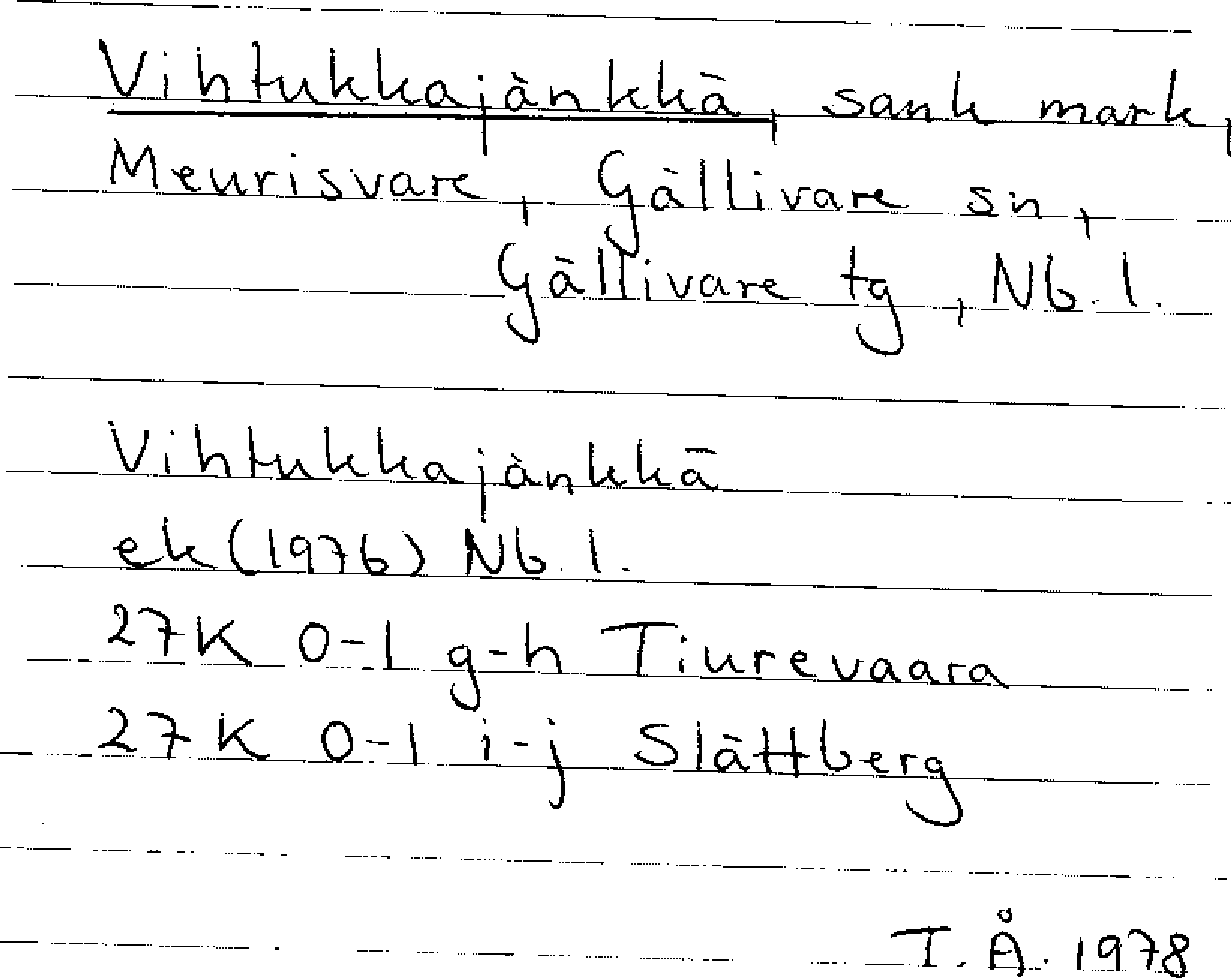 Vihtukkajänkkä, sank mark,
Meurisvare, Gällivare sn,
Gällivare tg, Nb. l.
Vihtukkajänkkä
ek (1976) Nb. l.
27K 0-1 g-h Tiurevaara
27K 0-1 i-j Slättberg
T. Å. 1978